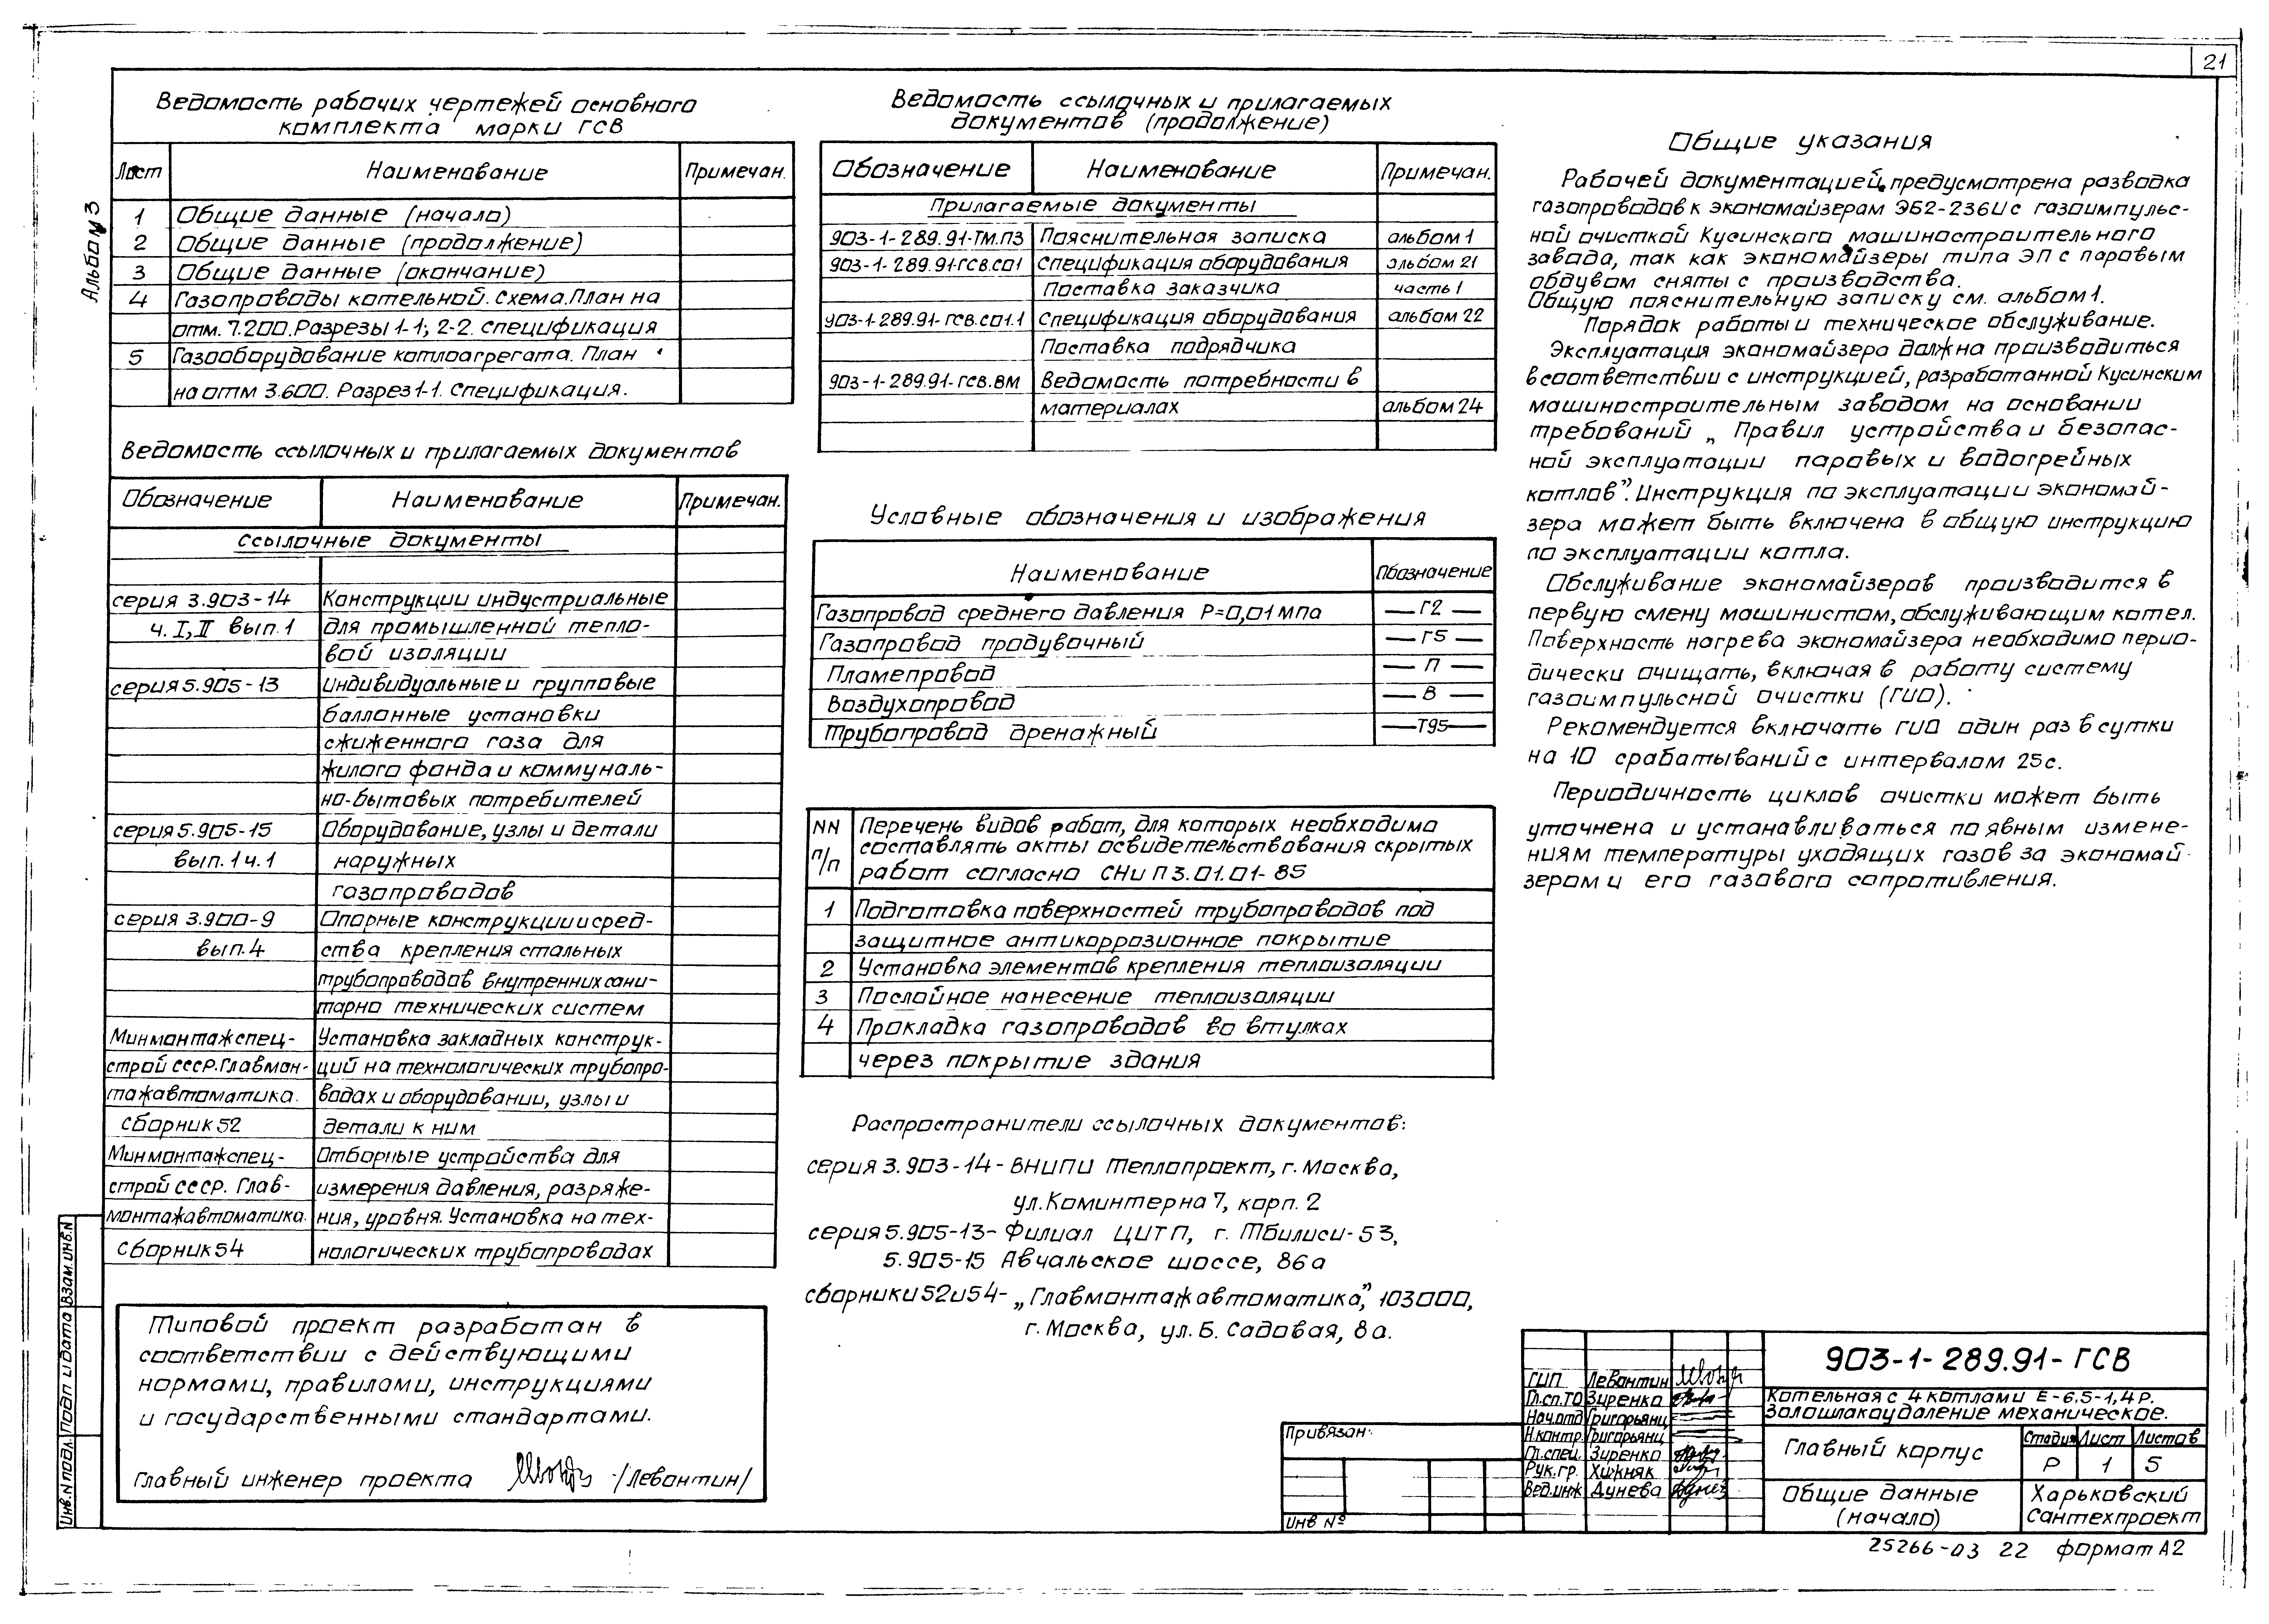 21
Альбом 3
Ведомость рабочих чертежей основного
комплекта марки ГСВ
Лист Наименование Примечан.
1 Общие данные (начало)
2 Общие данные (продолжение)
3 Общие данные (окончание)
4 Газопроводы котельной. Схема. План на
отм. 7.200. Разрезы 1-1; 2-2. Спецификация
5 Газооборудование котлоагрегата. План
на отм 3.600. Разрез 1-1. Спецификация.
Ведомость ссылочных и прилагаемых документов
Обозначение Наименование Примечан.
Ссылочные документы
серия 3.903-14 Конструкции индустриальные
ч. I, II вып. 1 для промышленной тепло-
вой изоляции
серия 5.905-13 Индивидуальные и групповые
баллонные установки
сжиженного газа для
жилого фонда и коммуналь-
но-бытовых потребителей
серия 5.905-15 Оборудование, узлы и детали
вып. 1 ч. 1 наружных
газопроводов
серия 3.900-9 Опорные конструкции и сред-
вып. 4 ства крепления стальных
трубопроводов внутренних сани-
тарно технических систем
Минмонтажспец- Установка закладных конструк-
строй СССР. Главмон- ций на технологических трубопро-
тажавтоматика. водах и оборудовании, узлы и
Сборник 52 детали к ним
Минмонтажспец- Отборные устройства для
строй СССР. Глав- измерения давления, разряже-
монтажавтоматика. ния, уровня. Установка на тех-
Сборник 54 нологических трубопроводах
Типовой проект разработан в
соответствии с действующими
нормами, правилами, инструкциями
и государственными стандартами.
Главный инженер проекта /Левантин/
Взам. инв. N
Подп и дата
Инв. N подл.
Ведомость ссылочных и прилагаемых
документов (продолжение)
Обозначение Наименование Примечан.
Прилагаемые документы
903-1-289.91-ТМ.ПЗ Пояснительная записка альбом 1
903-1-289.91-ГСВ.СО1 Спецификация оборудования альбом 21
Поставка заказчика часть 1
903-1-289.91-ГСВ.СО1.1 Спецификация оборудования альбом 22
Поставка подрядчика
903-1-289.91-ГСВ.ВМ Ведомость потребности в
материалах альбом 24
Условные обозначения и изображения
Наименование Обозначение
Газопровод среднего давления Р=0,01 мпа — Г2 —
Газопровод продувочный — Г5 —
Пламепровод — П —
Воздухопровод — В —
Трубопровод дренажный — Т95 —
NN п/п Перечень видов работ, для которых необходимо
составлять акты освидетельствования скрытых
работ согласно СНиП 3.01.01-85
1 Подготовка поверхностей трубопроводов под
защитное антикоррозионное покрытие
2 Установка элементов крепления теплоизоляции
3 Послойное нанесение теплоизоляции
4 Прокладка газопроводов во втулках
через покрытие здания
Распространители ссылочных документов:
серия 3.903-14- ВНИПИ Теплопроект, г. Москва,
ул. Коминтерна 7, корп. 2
серия 5.905-13- Филиал ЦИТП, г. Тбилиси-53,
5.905-15 Авчальское шоссе, 86а
сборники 52 и 54- „Главмонтажавтоматика”, 103000,
г. Москва, ул. Б. Садовая, 8а.
Общие указания
Рабочей документацией предусмотрена разводка
газопроводов к экономайзерам ЭБ2-236И с газоимпульс-
ной очисткой Кусинского машиностроительного
завода, так как экономайзеры типа ЭП с паровым
обдувом сняты с производства.
Общую пояснительную записку см. альбом 1.
Порядок работы и техническое обслуживание.
Эксплуатация экономайзера должна производиться
в соответствии с инструкцией, разработанной Кусинским
машиностроительным заводом на основании
требований „Правил устройства и безопас-
ной эксплуатации паровых и водогрейных
котлов”. Инструкция по эксплуатации экономай-
зера может быть включена в общую инструкцию
по эксплуатации котла.
Обслуживание экономайзеров производится в
первую смену машинистом, обслуживающим котел.
Поверхность нагрева экономайзера необходимо перио-
дически очищать, включая в работу систему
газоимпульсной очистки (ГИО).
Рекомендуется включать ГИО один раз в сутки
на 10 срабатываний с интервалом 25 с.
Периодичность циклов очистки может быть
уточнена и устанавливаться по явным измене-
ниям температуры уходящих газов за экономай-
зером и его газового сопротивления.
Привязан:
Инв №
ГИП Левантин
Гл.сп.ТО Зиренко
Нач.отд Григорьянц
Н.контр. Григорьянц
Гл.спец. Зиренко
Рук.гр. Хижняк
Вед.инж Дунева
903-1-289.91-ГСВ
Котельная с 4 котлами Е-6,5-1,4Р.
Золошлакоудаление механическое.
Главный корпус
Стадия Лист Листов
Р 1 5
Общие данные
(начало)
Харьковский
Сантехпроект
25266-03 22 формат А2